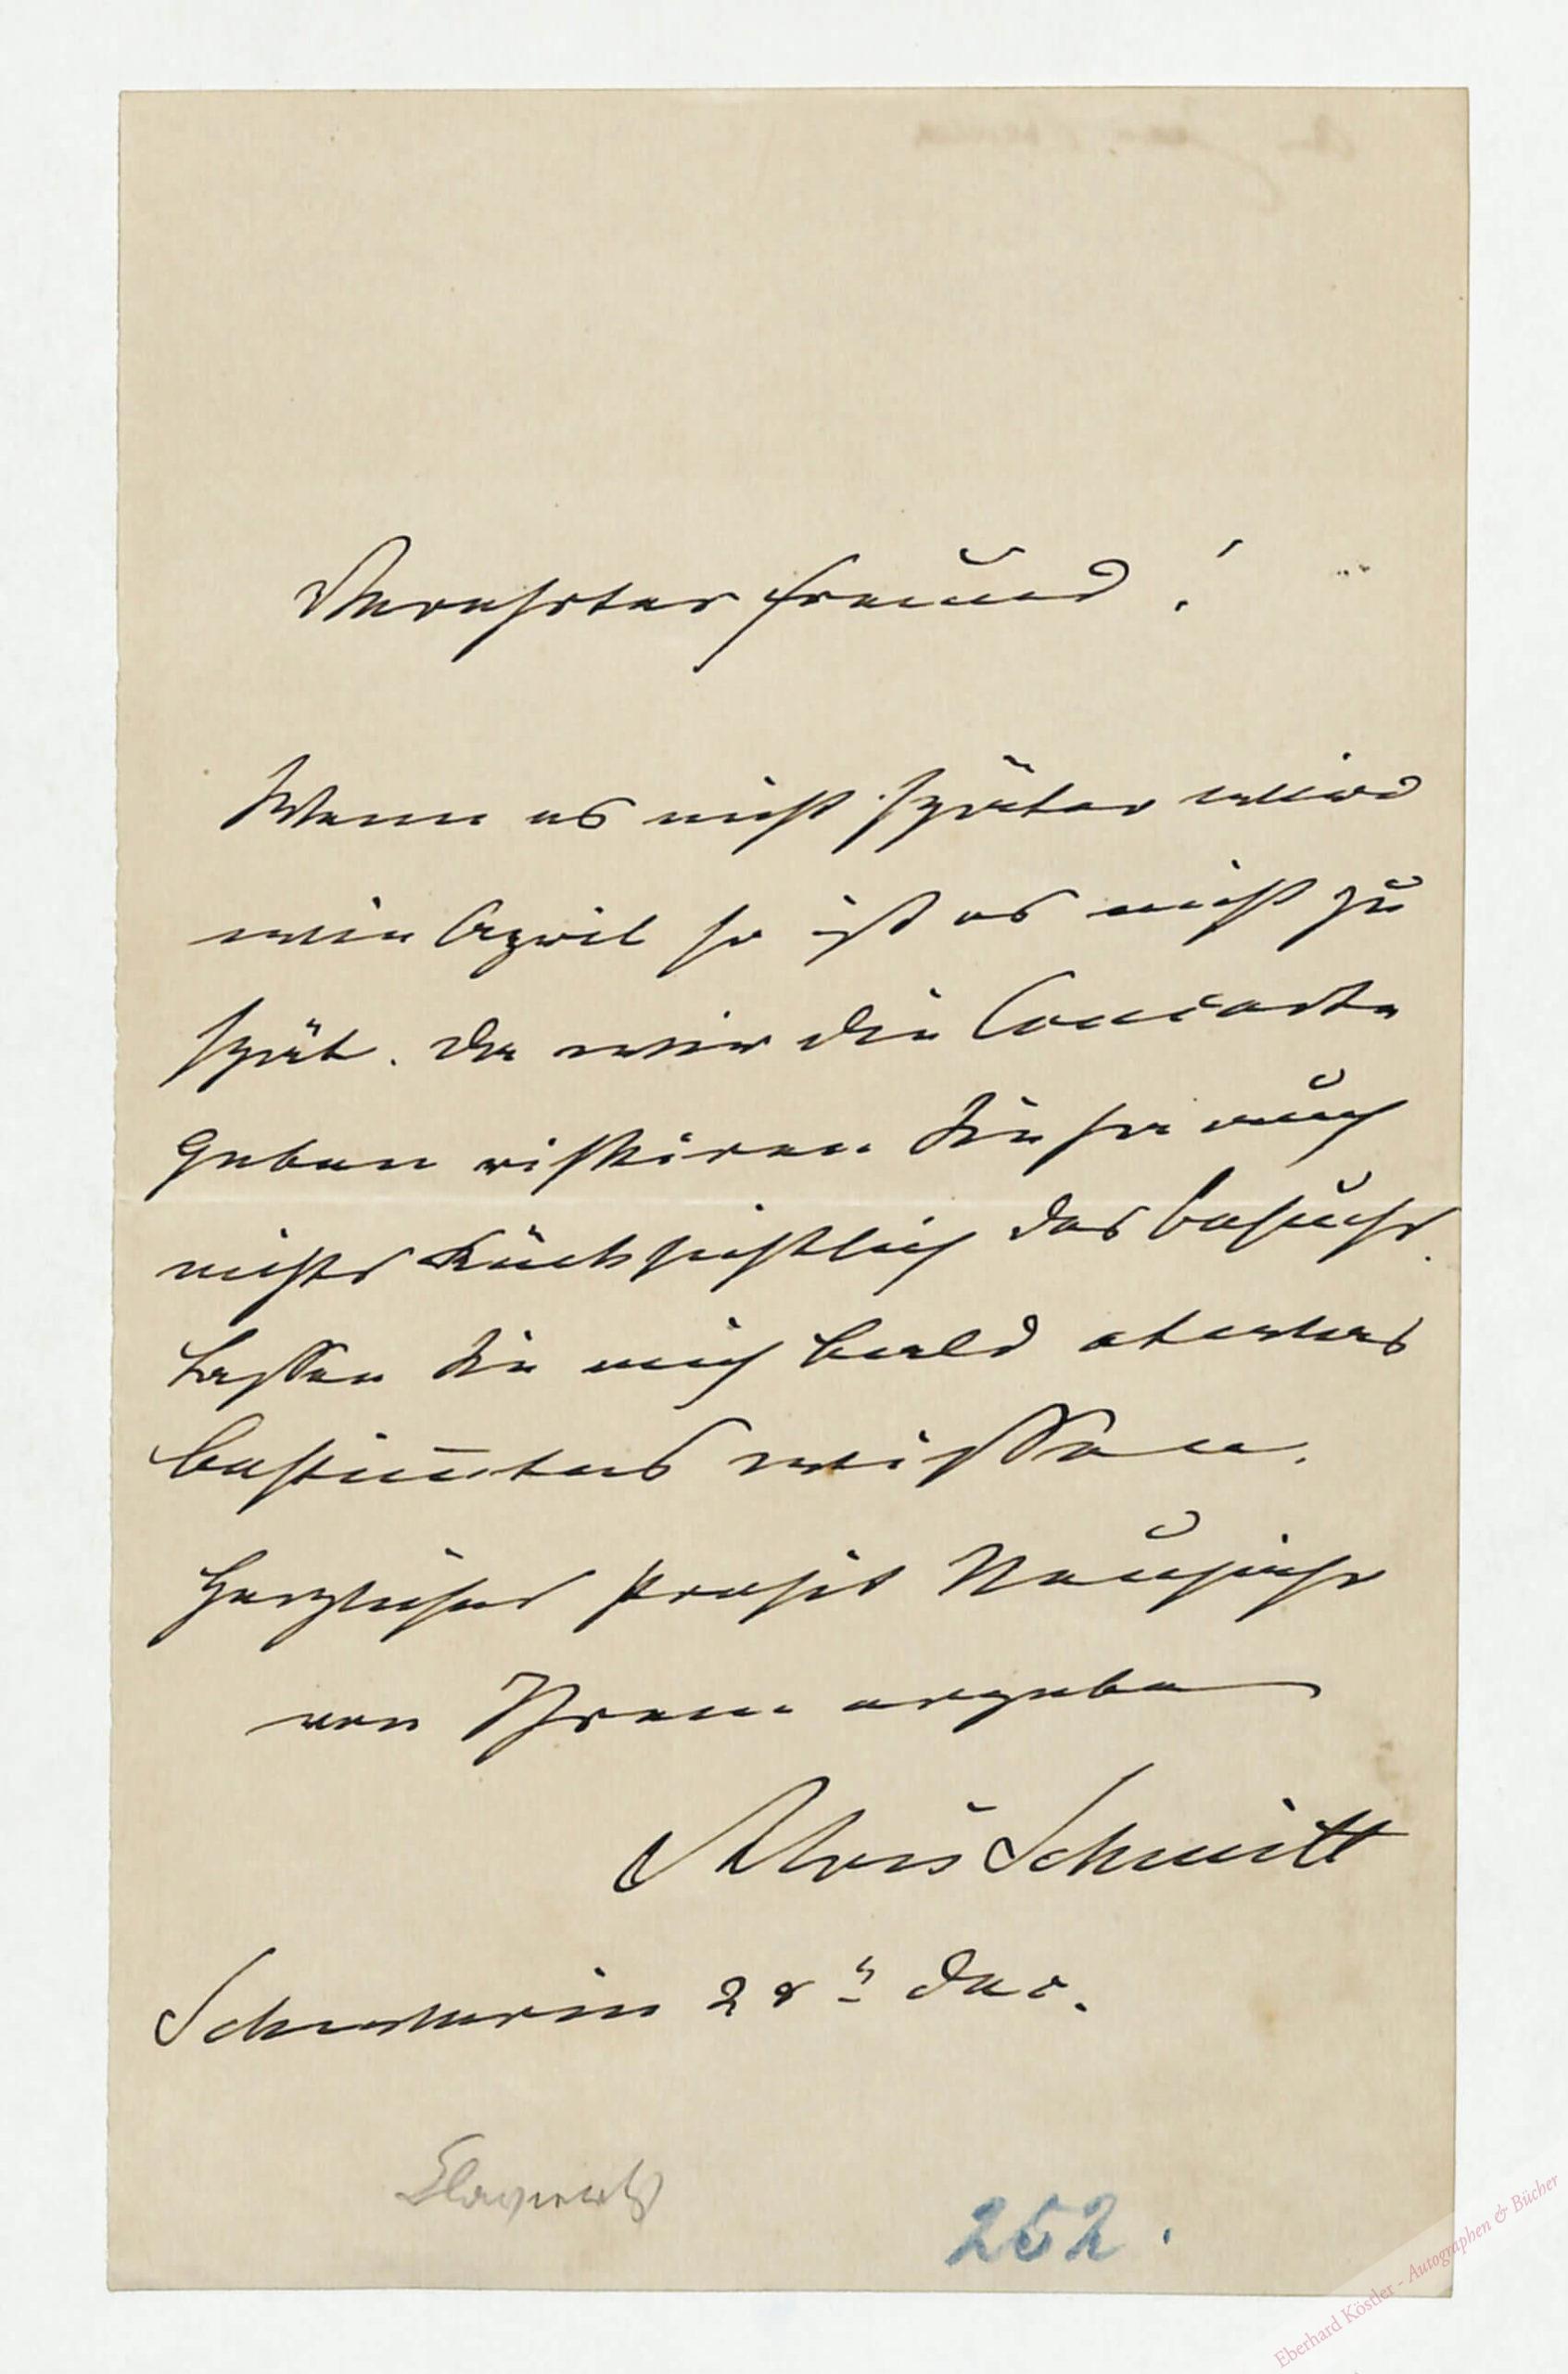 Verehrter Freund!
Wenn es nicht später wird
wie April so ist es nicht zu
spät. Da wir die Concerte
geben riskiren Sie ja auch
nichts Rücksichtlich des Besuchs.
Lassen Sie mich bald etwas
bestim̅tes wissen.
Herzliches prosit Neujahr
von Ihrem ergeben
Alois Schmitt
Schwerin 28t Dec.
252.
Eberhard Köstler - Autographen & Bücher